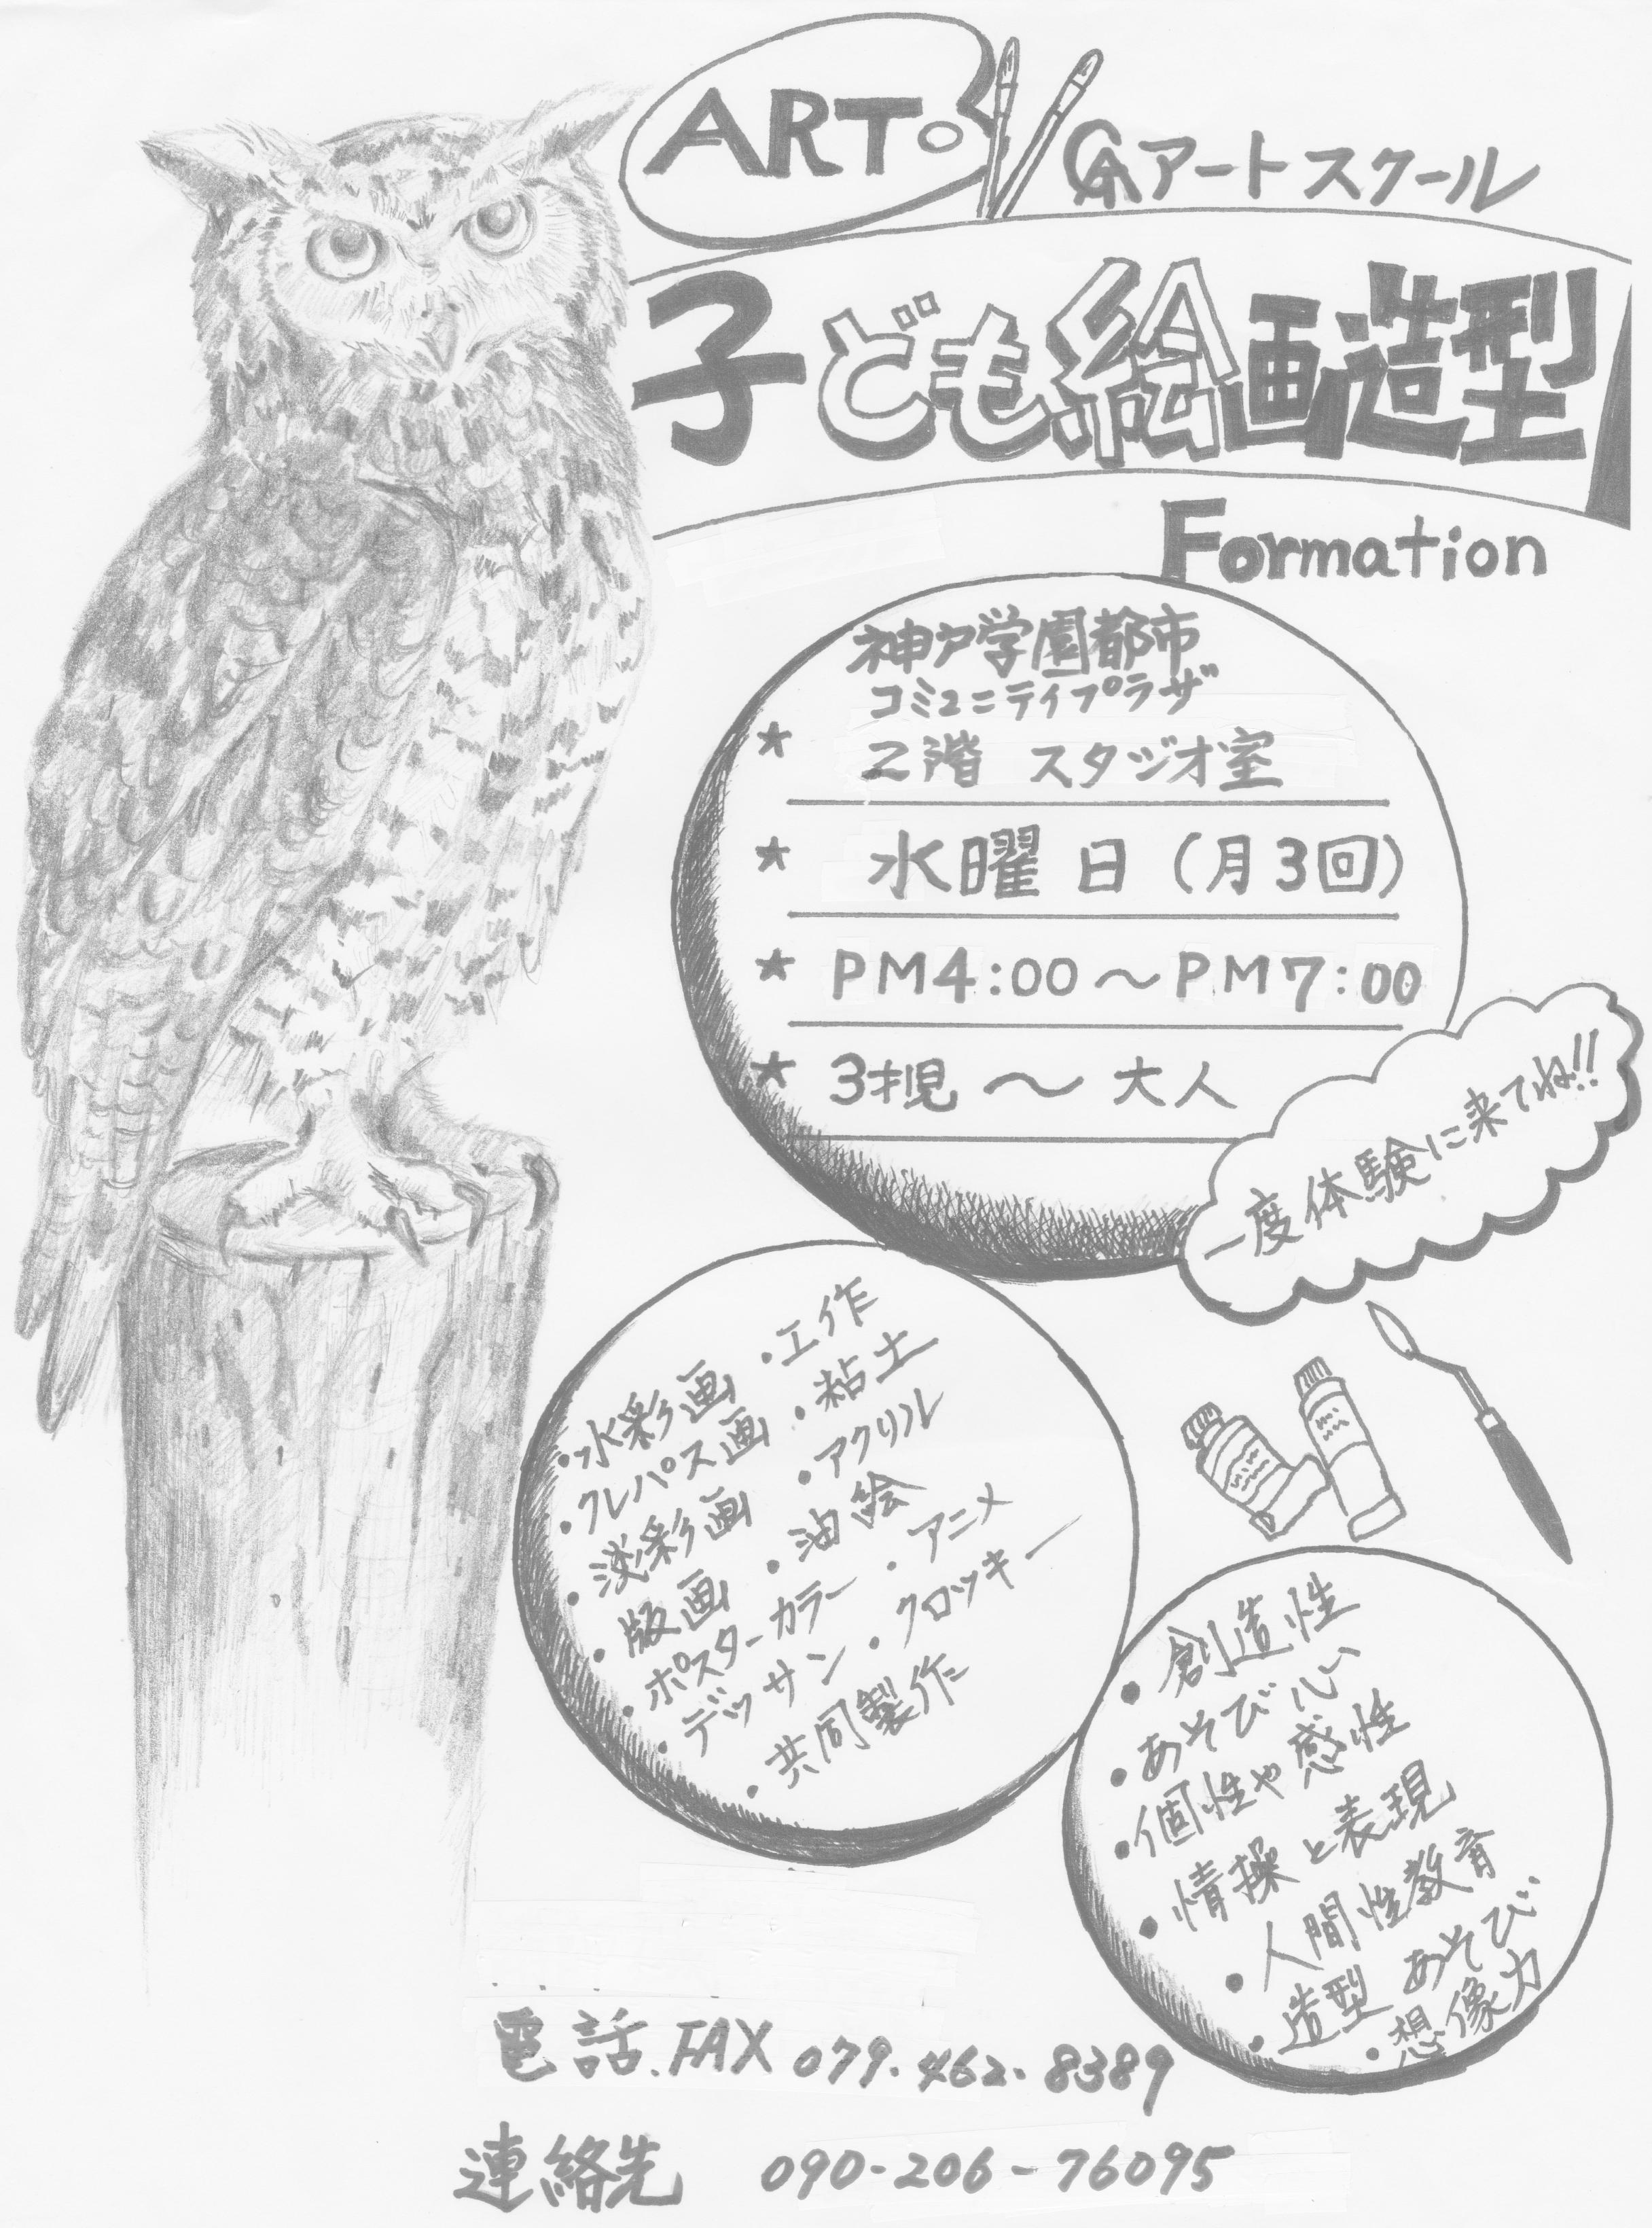 ART
GAアートスクール
子ども絵画造型
Formation
神戸学園都市
コミュニティプラザ
★ 2階 スタジオ室
★ 水曜日（月3回）
★ PM4:00～PM7:00
★ 3才児～大人
一度体験に来てね!!
・水彩画 ・工作
・クレパス画 ・粘土
・淡彩画 ・アクリル
・版画 ・油絵
・ポスターカラー ・アニメ
・デッサン ・クロッキー
・共同製作
・創造性
・あそび心
・個性や感性
・情操と表現
・人間性教育
・造型あそび
・想像力
電話.FAX 079.462.8389
連絡先 090-206-76095